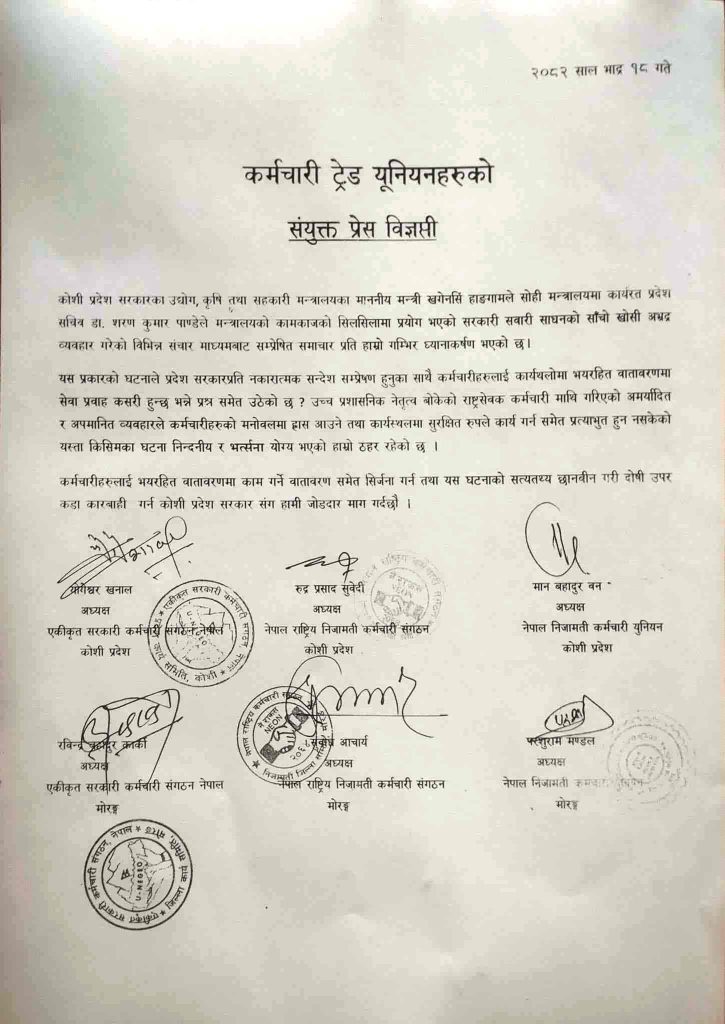 २०८२ साल भाद्र १८ गते
कर्मचारी ट्रेड यूनियनहरुको
संयुक्त प्रेस विज्ञप्ती
कोशी प्रदेश सरकारका उद्योग, कृषि तथा सहकारी मन्त्रालयका माननीय मन्त्री खगेनसिं हाङगामले सोही मन्त्रालयमा कार्यरत प्रदेश
सचिव डा. शरण कुमार पाण्डेले मन्त्रालयको कामकाजको सिलसिलामा प्रयोग भएको सरकारी सवारी साघनको साँचो खोसी अभ्रद्र
व्यवहार गरेको विभिन्न संचार माध्यमबाट सम्प्रेषित समाचार प्रति हाम्रो गम्भिर ध्यानाकर्षण भएको छ।
यस प्रकारको घटनाले प्रदेश सरकारप्रति नकारात्मक सन्देश सम्प्रेषण हुनुका साथै कर्मचारीहरुलाई कार्यथलोमा भयरहित वातावरणमा
सेवा प्रवाह कसरी हुन्छ भन्ने प्रश्न समेत उठेको छ ? उच्च प्रशासनिक नेतृत्व बोकेको राष्ट्रसेवक कर्मचारी माथि गरिएको अमर्यादित
र अपमानित व्यवहारले कर्मचारीहरुको मनोवलमा ह्रास आउने तथा कार्यस्थलमा सुरक्षित रुपले कार्य गर्न समेत प्रत्याभुत हुन नसकेको
यस्ता किसिमका घटना निन्दनीय र भर्त्सना योग्य भएको हाम्रो ठहर रहेको छ ।
कर्मचारीहरुलाई भयरहित वातावरणमा काम गर्ने वातावरण समेत सिर्जना गर्न तथा यस घटनाको सत्यतथ्य छानवीन गरी दोषी उपर
कडा कारबाही गर्न कोशी प्रदेश सरकार संग हामी जोडदार माग गर्दछौ ।
योगेश्वर खनाल
रुद्र प्रसाद सुवेदी
मान बहादुर बन
अध्यक्ष
अध्यक्ष
अध्यक्ष
एकीकृत सरकारी कर्मचारी संगठन नेपाल
नेपाल राष्ट्रिय निजामती कर्मचारी संगठन
नेपाल निजामती कर्मचारी युनियन
कोशी प्रदेश
कोशी प्रदेश
कोशी प्रदेश
रविन्द्र बहादुर कार्की
सुवोध आचार्य
परशुराम मण्डल
अध्यक्ष
अध्यक्ष
अध्यक्ष
एकीकृत सरकारी कर्मचारी संगठन नेपाल
नेपाल राष्ट्रिय निजामती कर्मचारी संगठन
नेपाल निजामती कर्मचारी युनियन
मोरङ्ग
मोरङ्ग
मोरङ्ग